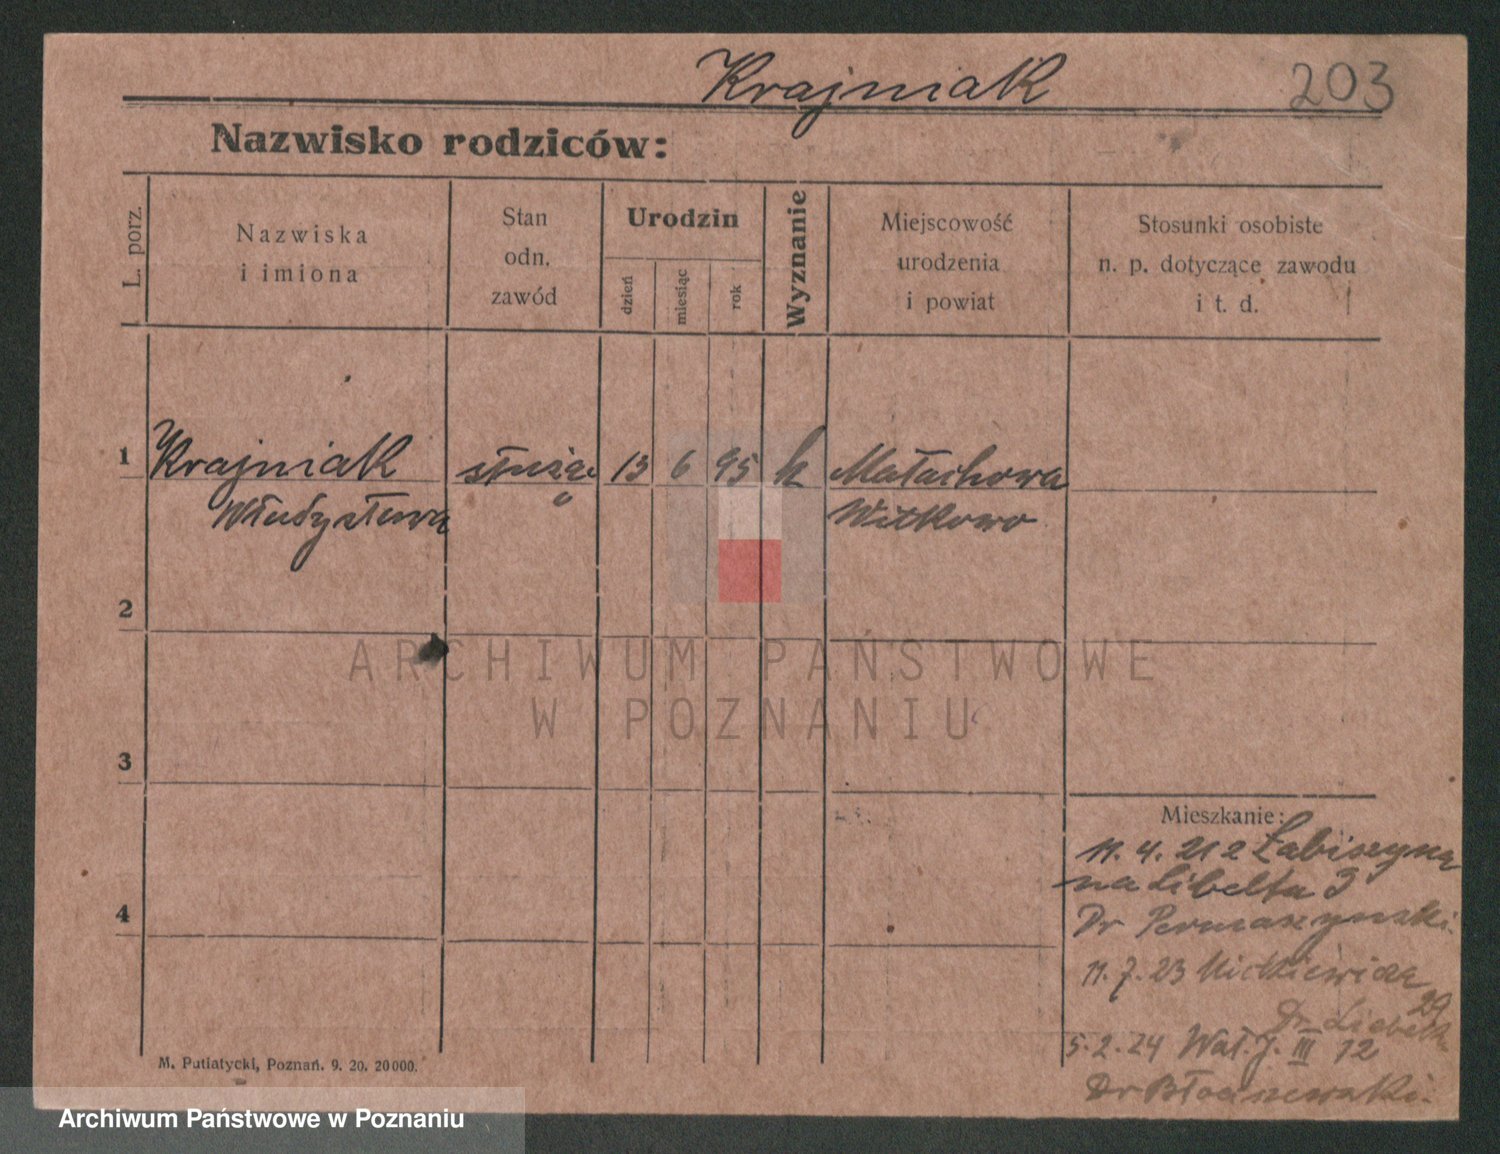 Krajniak
203
Nazwisko rodziców:
L. porz.
Nazwiska
i imiona
Stan
odn.
zawód
Urodzin
dzień
miesiąc
rok
Wyznanie
Miejscowość
urodzenia
i powiat
Stosunki osobiste
n. p. dotyczące zawodu
i t. d.
1
Krajniak
Władysława
służąc
13
6
95
k
Małachowa
Witkowo
2
ARCHIWUM PAŃSTWOWE
W POZNANIU
3
4
Mieszkanie:
11. 4. 21 z Łabiszyna
na Libelta 3
Dr
11. 7. 23 Mickiewicza
29
Dr.
5. 2. 24 Wał. J. III 12
Dr Błociszewski.
M. Putiatycki, Poznań. 9. 20. 20000.
Archiwum Państwowe w Poznaniu